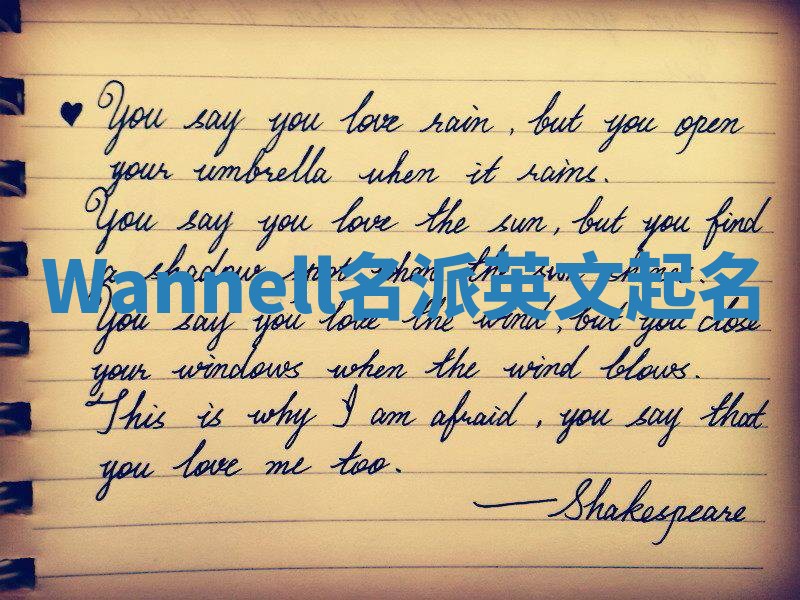 ♥ You say you love rain, but you open
your umbrella when it rains.
You say you love the sun, but you find
a shadow spot when the sun shines.
Wannell名派英文起名
You say you love the wind, but you close
your windows when the wind blows.
This is why I am afraid, you say that
you love me too.
—Shakespeare